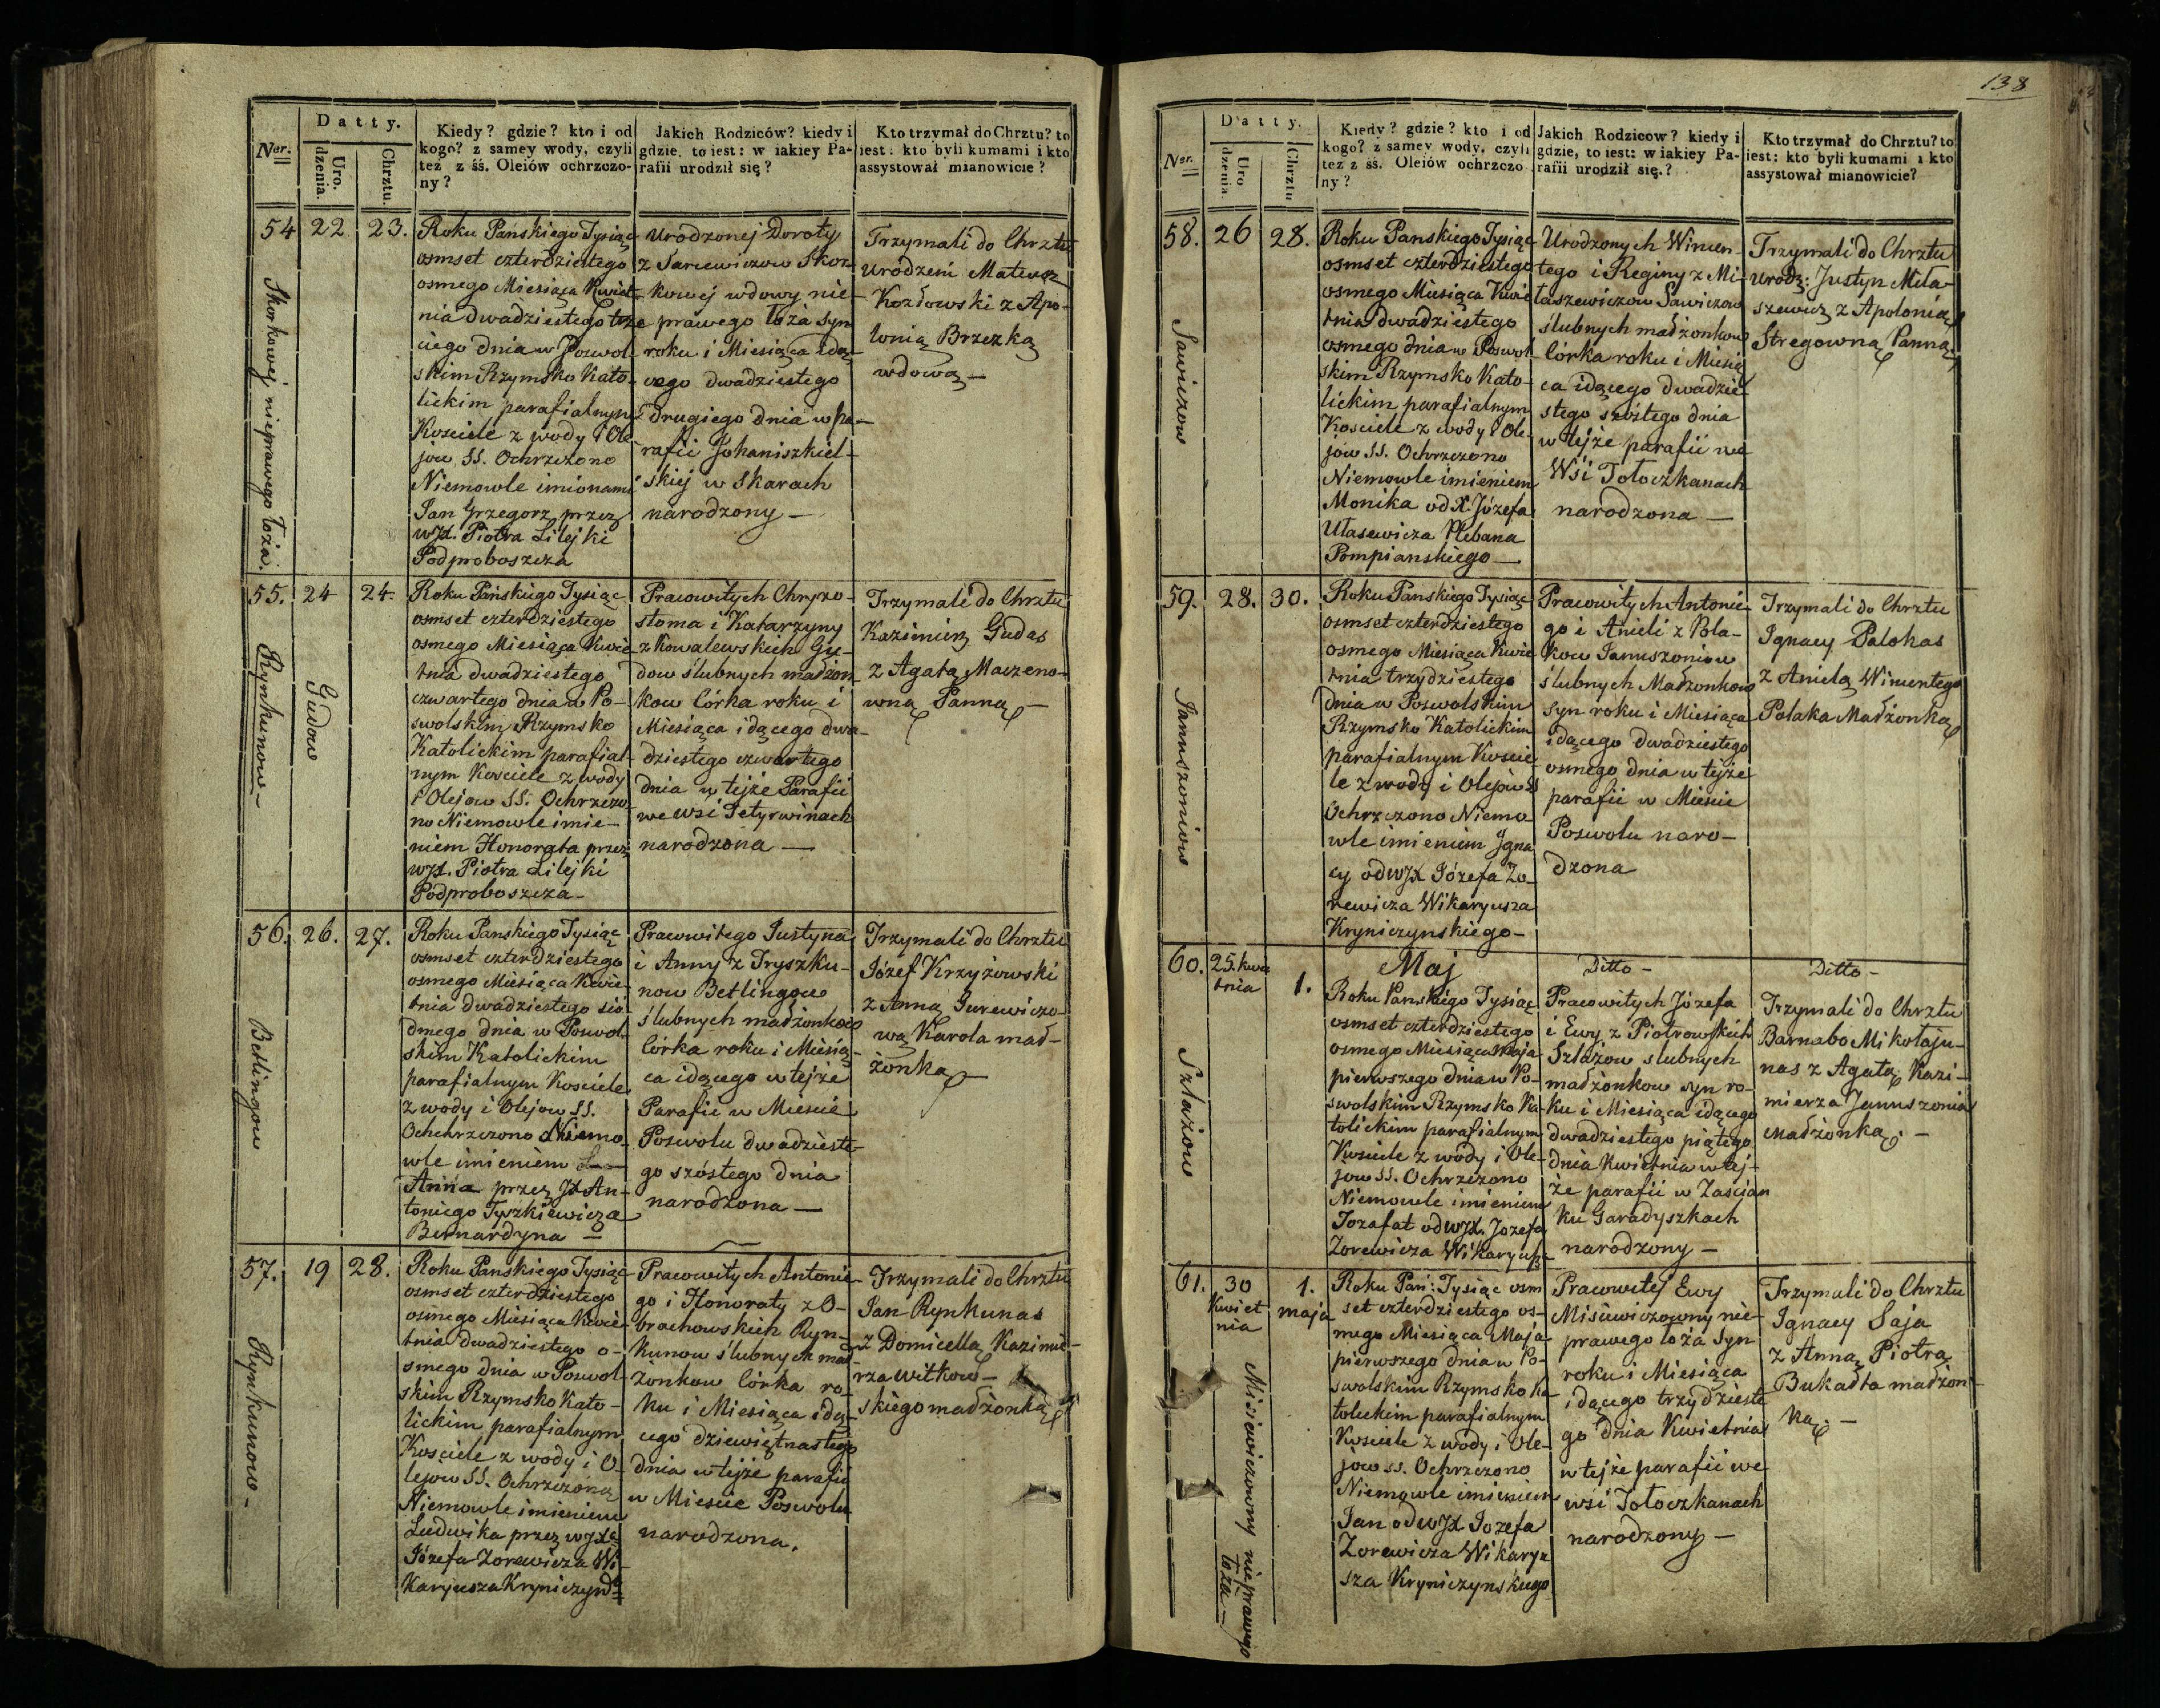 138
Datty.
Ner.
Uro.
dzenia.
Chrztu.
Kiedy? gdzie? kto i od
kogo? z samey wody, czyli
też z śś. Oleiów ochrzczo-
ny?
Jakich Rodziców? kiedy i
gdzie, to iest: w iakiey Pa-
rafii urodził się?
Kto trzymał do Chrztu? to
iest: kto byli kumami i kto
assystował mianowicie?
54
22
23.
Skorkowej nieprawego łoża.
Roku Pańskiego Tysiąc
osmset czterdziestego
osmego Miesiąca Kwiet-
nia dwadziestego trze
ciego dnia w Poswol
skim Rzymsko Kato-
lickim parafialnym
Kosciele z wody i Ole
jow SS. Ochrzczono
Niemowle imionami
Jan Grzegorz przez
WJX. Piotra Lilejki
Podproboszcza
Urodzonej Doroty
z Sarcewiczow Skor-
kowej wdowy nie-
prawego łoża Syn
roku i Miesiąca idą-
cego dwadziestego
drugiego dnia w Pa-
rafii Johaniszkiel-
skiej w Skarach
narodzony —
Trzymali do Chrztu
urodzeń Mateusz
Kozłowski z Apo-
lonią Brzezką
wdową —
55.
24
24.
Rynkunow —
Gudow
Roku Pańskiego Tysiąc
osmset czterdziestego
osmego Miesiąca Kwie
tnia dwadziestego
czwartego dnia w Po-
swolskim Rzymsko
Katolickim parafial
nym Kosciele z wody
i Olejow SS. Ochrzczo
no Niemowle imie-
niem Honorata przez
WJX. Piotra Lilejki
Podproboszcza —
Pracowitych Chryzo-
stoma i Katarzyny
z Kowalewskich Gu-
dow ślubnych małżon
kow Córka roku i
Miesiąca idącego dwa-
dziestego czwartego
dnia w tejże Parafii
we wsi Petyrwinach
narodzona —
Trzymali do Chrztu
Kazimierz Gudas
z Agatą Maczeno-
wną Panną —
56.
26.
27.
Betlingow
Roku Panskiego Tysiąc
osmset czterdziestego
osmego Miesiąca Kwie-
tnia dwadziestego sió
dmego dnia w Poswol
skim Katolickim
parafialnym Kosciele
z wody i Olejow SS.
Ochchrzczono Niemo-
wle imieniem
Anna przez JX An-
toniego Tyszkiewicza
Bernardyna
Pracowitego Justyna
i Anny z Tryszku-
now Betlingow
ślubnych małżonkow
Córka roku i Miesią-
ca idącego w tejże
Parafii w Miescie
Poswolu dwadzieste-
go szóstego dnia
narodzona —
Trzymali do Chrztu
Józef Krzyżowski
z Anną Gurewiczo-
wą Karola mał-
żonką —
57.
19
28.
Rynkunow —
Roku Panskiego Tysiąc
osmset czterdziestego
osmego Miesiąca Kwie-
tnia dwadziestego o-
smego dnia w Poswol-
skim Rzymsko Kato-
lickim parafialnym
Kosciele z wody i O-
lejow SS. Ochrzczono
Niemowle imieniem
Ludwika przez WJXa
Józefa Zorewicza Wi-
Karjusza
Pracowitych Antonie-
go i Honoraty z O-
brachowskich Ryn-
kunow ślubnych mał-
żonkow Córka ro-
ku i Miesiąca idą-
cego dziewiętnastego
dnia w tejże parafii
w Miescie Poswolu
narodzona.
Trzymali do Chrztu
Jan Rynkunas
z Domicellą Kazimie-
rza Witkow-
skiego małżonką
Datty.
Ner.
Uro
dzenia.
Chrztu
Kiedy? gdzie? kto i od
kogo? z samey wody, czyli
też z śś. Oleiów ochrzczo
ny?
Jakich Rodziców? kiedy i
gdzie, to iest: w iakiey Pa-
rafii urodził się.?
Kto trzymał do Chrztu? to
iest: kto byli kumami i kto
assystował mianowicie?
58.
26
28.
Sawiczow
Roku Panskiego Tysiąc
osmset czterdziestego
osmego Miesiąca Kwie
tnia dwadziestego
osmego dnia w Poswol
skim Rzymsko Kato-
lickim parafialnym
Kosciele z wody i Ole-
jow SS. Ochrzczono
Niemowle imieniem
Monika od X. Józefa
Ułasewicza Plebana
Pompianskiego —
Urodzonych Wincen-
tego i Reginy z Mi-
łaszewiczow Sawiczow
ślubnych małżonkow
Córka roku i Miesią
ca idącego dwadzie
stego szóstego dnia
w tejże parafii we
Wsi Tołoczkanach
narodzona —
Trzymali do Chrztu
Urodz: Justyn Miła-
szewicz z Apolonią
Stregowną Panną
59.
28.
30.
Januszoniow
Roku Panskiego Tysiąc
osmset czterdziestego
osmego Miesiąca Kwie
tnia trzydziestego
dnia w Poswolskim
Rzymsko Katolickim
parafialnym Koscie
le z wody i Olejow SS
Ochrzczono Niemo
wle imieniem Igna
cy od WJX Józefa Zo-
rewicza Wikaryusza
Kryniczynskiego —
Pracowitych Antonie-
go i Anieli z Pola-
kow Januszoniow
ślubnych Małżonkow
syn roku i Miesiąca
idącego dwadziestego
osmego dnia w tejże
parafii w Miescie
Poswolu naro-
dzona
Trzymali do Chrztu
Ignacy Palokas
z Anielą Wincentego
Polaka Małżonką
60.
25. kwie
tnia
1.
Szlażow
Maj
Roku Panskiego Tysiąc
osmset czterdziestego
osmego Miesiąca Maja
pierwszego dnia w Po-
swolskim Rzymsko Ka-
tolickim parafialnym
Kosciele z wody i Ole-
jow SS. Ochrzczono
Niemowle imieniem
Jozafat od WJX. Jozefa
Zorewicza Wikaryusz
Ditto —
Pracowitych Józefa
i Ewy z Piotrowskich
Szlażow slubnych
małżonkow syn ro-
ku i Miesiąca idącego
dwadziestego piątego
dnia Kwietnia w tej-
że parafii w Zascian
ku Garadyszkach
narodzony —
Ditto —
Trzymali do Chrztu
Barnabo Mikołaju-
nas z Agatą Kazi-
mierza Januszonia
Małżonką. —
61.
30
Kwiet
nia
1.
maja
Misiewiczowny nieprawego
łoża —
Roku Pań: Tysiąc osm
set czterdziestego os-
mego Miesiąca Maja
pierwszego dnia w Po-
swolskim Rzymsko Ka
tolickim parafialnym
Kosciele z wody i Ole-
jow SS. Ochrzczono
Niemowle imieniem
Jan od WJX Jozefa
Zorewicza Wikaryu
sza Kryniczynskiego
Pracowitej Ewy
Misiewiczowny nie-
prawego łoża Syn
roku i Miesiąca
idącego trzydzieste
go dnia Kwietnia
w tejże parafii we
wsi Tołoczkanach
narodzony —
Trzymali do Chrztu
Ignacy Saja
z Anną Piotra
Bukałta małżon-
ką. —